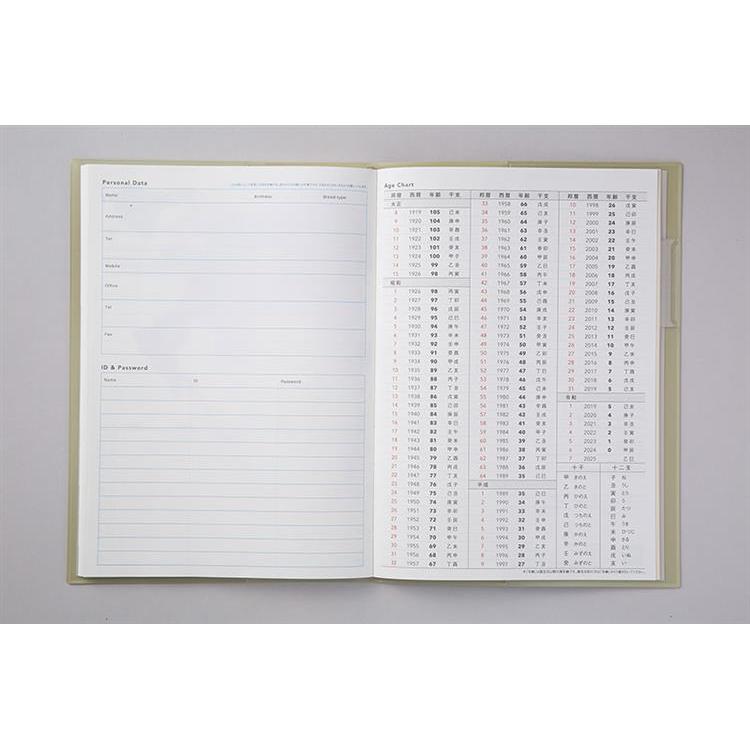 Personal Data
Name Birthday Blood type
Address
Tel
Mobile
Office
Tel
Fax
ID & Password
Name ID Password
Age Chart
邦暦 西暦 年齢 干支
大正
8 1919 105 己未
9 1920 104 庚申
10 1921 103 辛酉
11 1922 102 壬戌
12 1923 101 癸亥
13 1924 100 甲子
14 1925 99 乙丑
15 1926 98 丙寅
昭和
1 1926 98 丙寅
2 1927 97 丁卯
3 1928 96 戊辰
4 1929 95 己巳
5 1930 94 庚午
6 1931 93 辛未
7 1932 92 壬申
8 1933 91 癸酉
9 1934 90 甲戌
10 1935 89 乙亥
11 1936 88 丙子
12 1937 87 丁丑
13 1938 86 戊寅
14 1939 85 己卯
15 1940 84 庚辰
16 1941 83 辛巳
17 1942 82 壬午
18 1943 81 癸未
19 1944 80 甲申
20 1945 79 乙酉
21 1946 78 丙戌
22 1947 77 丁亥
23 1948 76 戊子
24 1949 75 己丑
25 1950 74 庚寅
26 1951 73 辛卯
27 1952 72 壬辰
28 1953 71 癸巳
29 1954 70 甲午
30 1955 69 乙未
31 1956 68 丙申
32 1957 67 丁酉
邦暦 西暦 年齢 干支
33 1958 66 戊戌
34 1959 65 己亥
35 1960 64 庚子
36 1961 63 辛丑
37 1962 62 壬寅
38 1963 61 癸卯
39 1964 60 甲辰
40 1965 59 乙巳
41 1966 58 丙午
42 1967 57 丁未
43 1968 56 戊申
44 1969 55 己酉
45 1970 54 庚戌
46 1971 53 辛亥
47 1972 52 壬子
48 1973 51 癸丑
49 1974 50 甲寅
50 1975 49 乙卯
51 1976 48 丙辰
52 1977 47 丁巳
53 1978 46 戊午
54 1979 45 己未
55 1980 44 庚申
56 1981 43 辛酉
57 1982 42 壬戌
58 1983 41 癸亥
59 1984 40 甲子
60 1985 39 乙丑
61 1986 38 丙寅
62 1987 37 丁卯
63 1988 36 戊辰
64 1989 35 己巳
平成
1 1989 35 己巳
2 1990 34 庚午
3 1991 33 辛未
4 1992 32 壬申
5 1993 31 癸酉
6 1994 30 甲戌
7 1995 29 乙亥
8 1996 28 丙子
9 1997 27 丁丑
邦暦 西暦 年齢 干支
10 1998 26 戊寅
11 1999 25 己卯
12 2000 24 庚辰
13 2001 23 辛巳
14 2002 22 壬午
15 2003 21 癸未
16 2004 20 甲申
17 2005 19 乙酉
18 2006 18 丙戌
19 2007 17 丁亥
20 2008 16 戊子
21 2009 15 己丑
22 2010 14 庚寅
23 2011 13 辛卯
24 2012 12 壬辰
25 2013 11 癸巳
26 2014 10 甲午
27 2015 9 乙未
28 2016 8 丙申
29 2017 7 丁酉
30 2018 6 戊戌
31 2019 5 己亥
令和
1 2019 5 己亥
2 2020 4 庚子
3 2021 3 辛丑
4 2022 2 壬寅
5 2023 1 癸卯
6 2024 0 甲辰
7 2025 乙巳
十干
甲 きのえ
乙 きのと
丙 ひのえ
丁 ひのと
戊 つちのえ
己 つちのと
庚 かのえ
辛 かのと
壬 みずのえ
癸 みずのと
十二支
子 ね
丑 うし
寅 とら
卯 う
辰 たつ
巳 み
午 うま
未 ひつじ
申 さる
酉 とり
戌 いぬ
亥 い